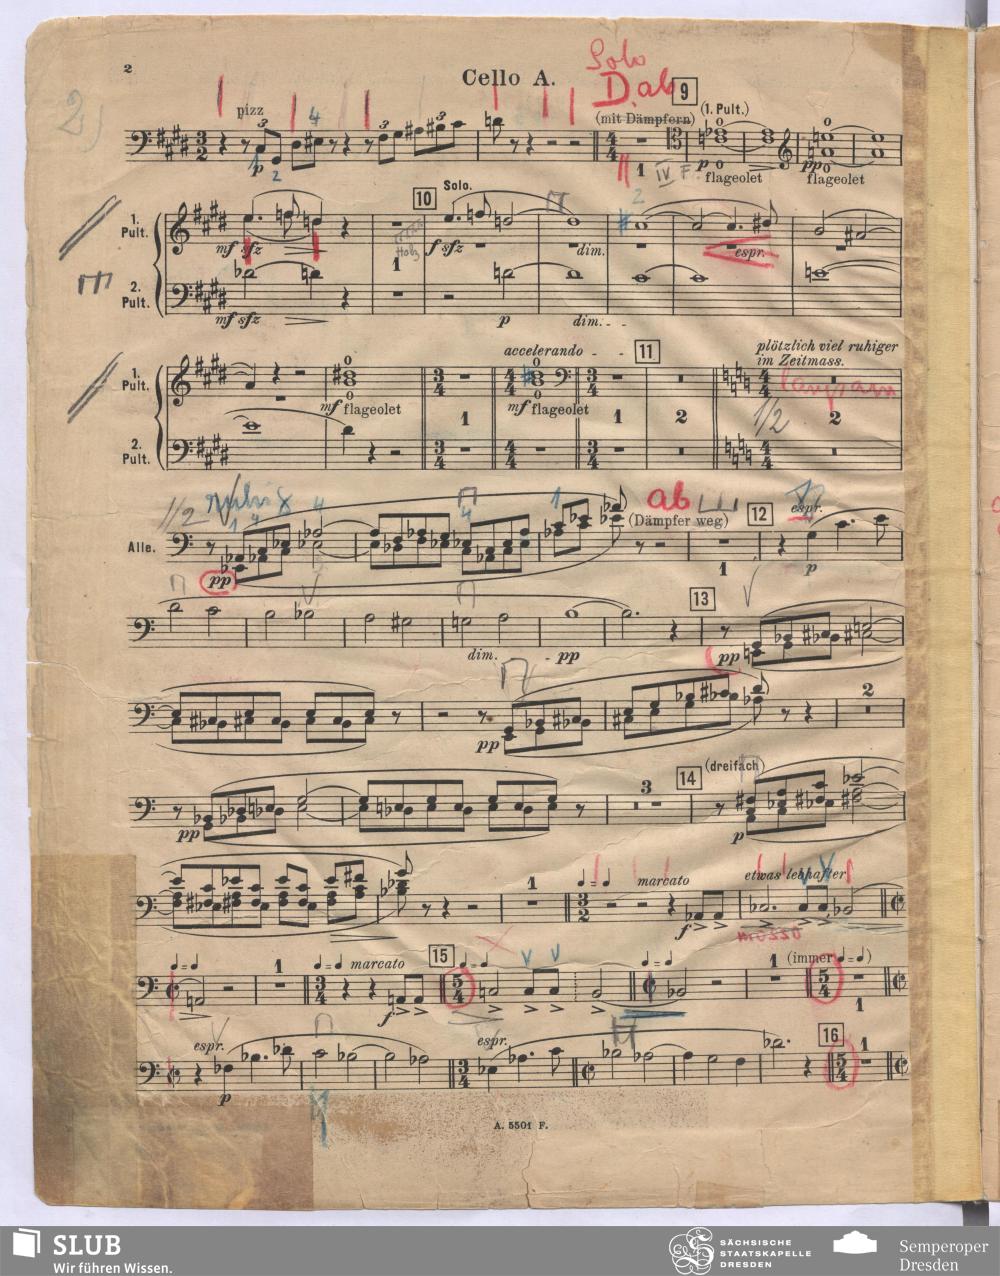 2
Cello A.
Solo
D. ab
2)
pizz
3
3
3
4
p
2
(mit Dämpfern)
9
(1. Pult.)
1
IV
p
flageolet
pp
flageolet
10
Solo.
2
1. Pult.
mf sfz
f sfz
dim.
espr.
1
2. Pult.
mf sfz
p
dim.
accelerando
11
plötzlich viel ruhiger
im Zeitmass.
langsam
1. Pult.
mf flageolet
mf flageolet
1
1
2
1/2
2. Pult.
1/2
ruhig
4
1
ab
espr.
1 4
4
(Dämpfer weg)
12
Alle.
pp
1
p
13
dim.
pp
pp
2
pp
14
(dreifach)
3
pp
p
1
marcato
etwas lebhafter
f
15
1
marcato
1
(immer)
f
1
espr.
espr.
16
1
p
A. 5501 F.
SLUB
Wir führen Wissen.
SÄCHSISCHE
STAATSKAPELLE
DRESDEN
Semperoper
Dresden